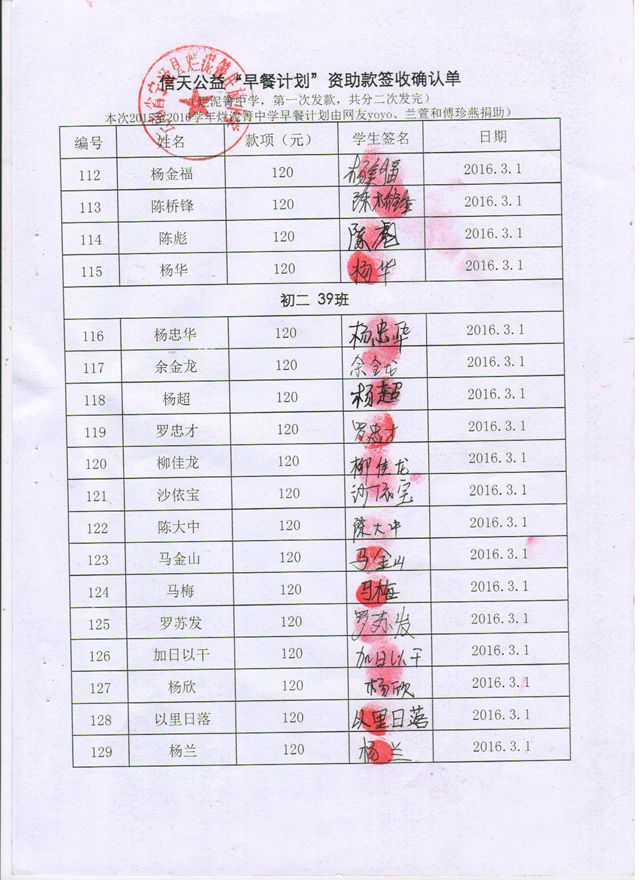 信天公益“早餐计划”资助款签收确认单
（烂泥箐中学，第一次发款，共分二次发完）
本次2015至2016学年烂泥箐中学早餐计划由网友yoyo、兰萱和傅珍燕捐助）
编号 姓名 款项（元） 学生签名 日期
112 杨金福 120 杨金福 2016.3.1
113 陈桥锋 120 陈木锋 2016.3.1
114 陈彪 120 陈彪 2016.3.1
115 杨华 120 杨华 2016.3.1
初二 39班
116 杨忠华 120 杨忠华 2016.3.1
117 余金龙 120 余金龙 2016.3.1
118 杨超 120 杨超 2016.3.1
119 罗忠才 120 罗忠才 2016.3.1
120 柳佳龙 120 柳佳龙 2016.3.1
121 沙依宝 120 沙依宝 2016.3.1
122 陈大中 120 陈大中 2016.3.1
123 马金山 120 马金山 2016.3.1
124 马梅 120 马梅 2016.3.1
125 罗苏发 120 罗苏发 2016.3.1
126 加日以干 120 加日以干 2016.3.1
127 杨欣 120 杨欣 2016.3.1
128 以里日落 120 以里日落 2016.3.1
129 杨兰 120 杨兰 2016.3.1